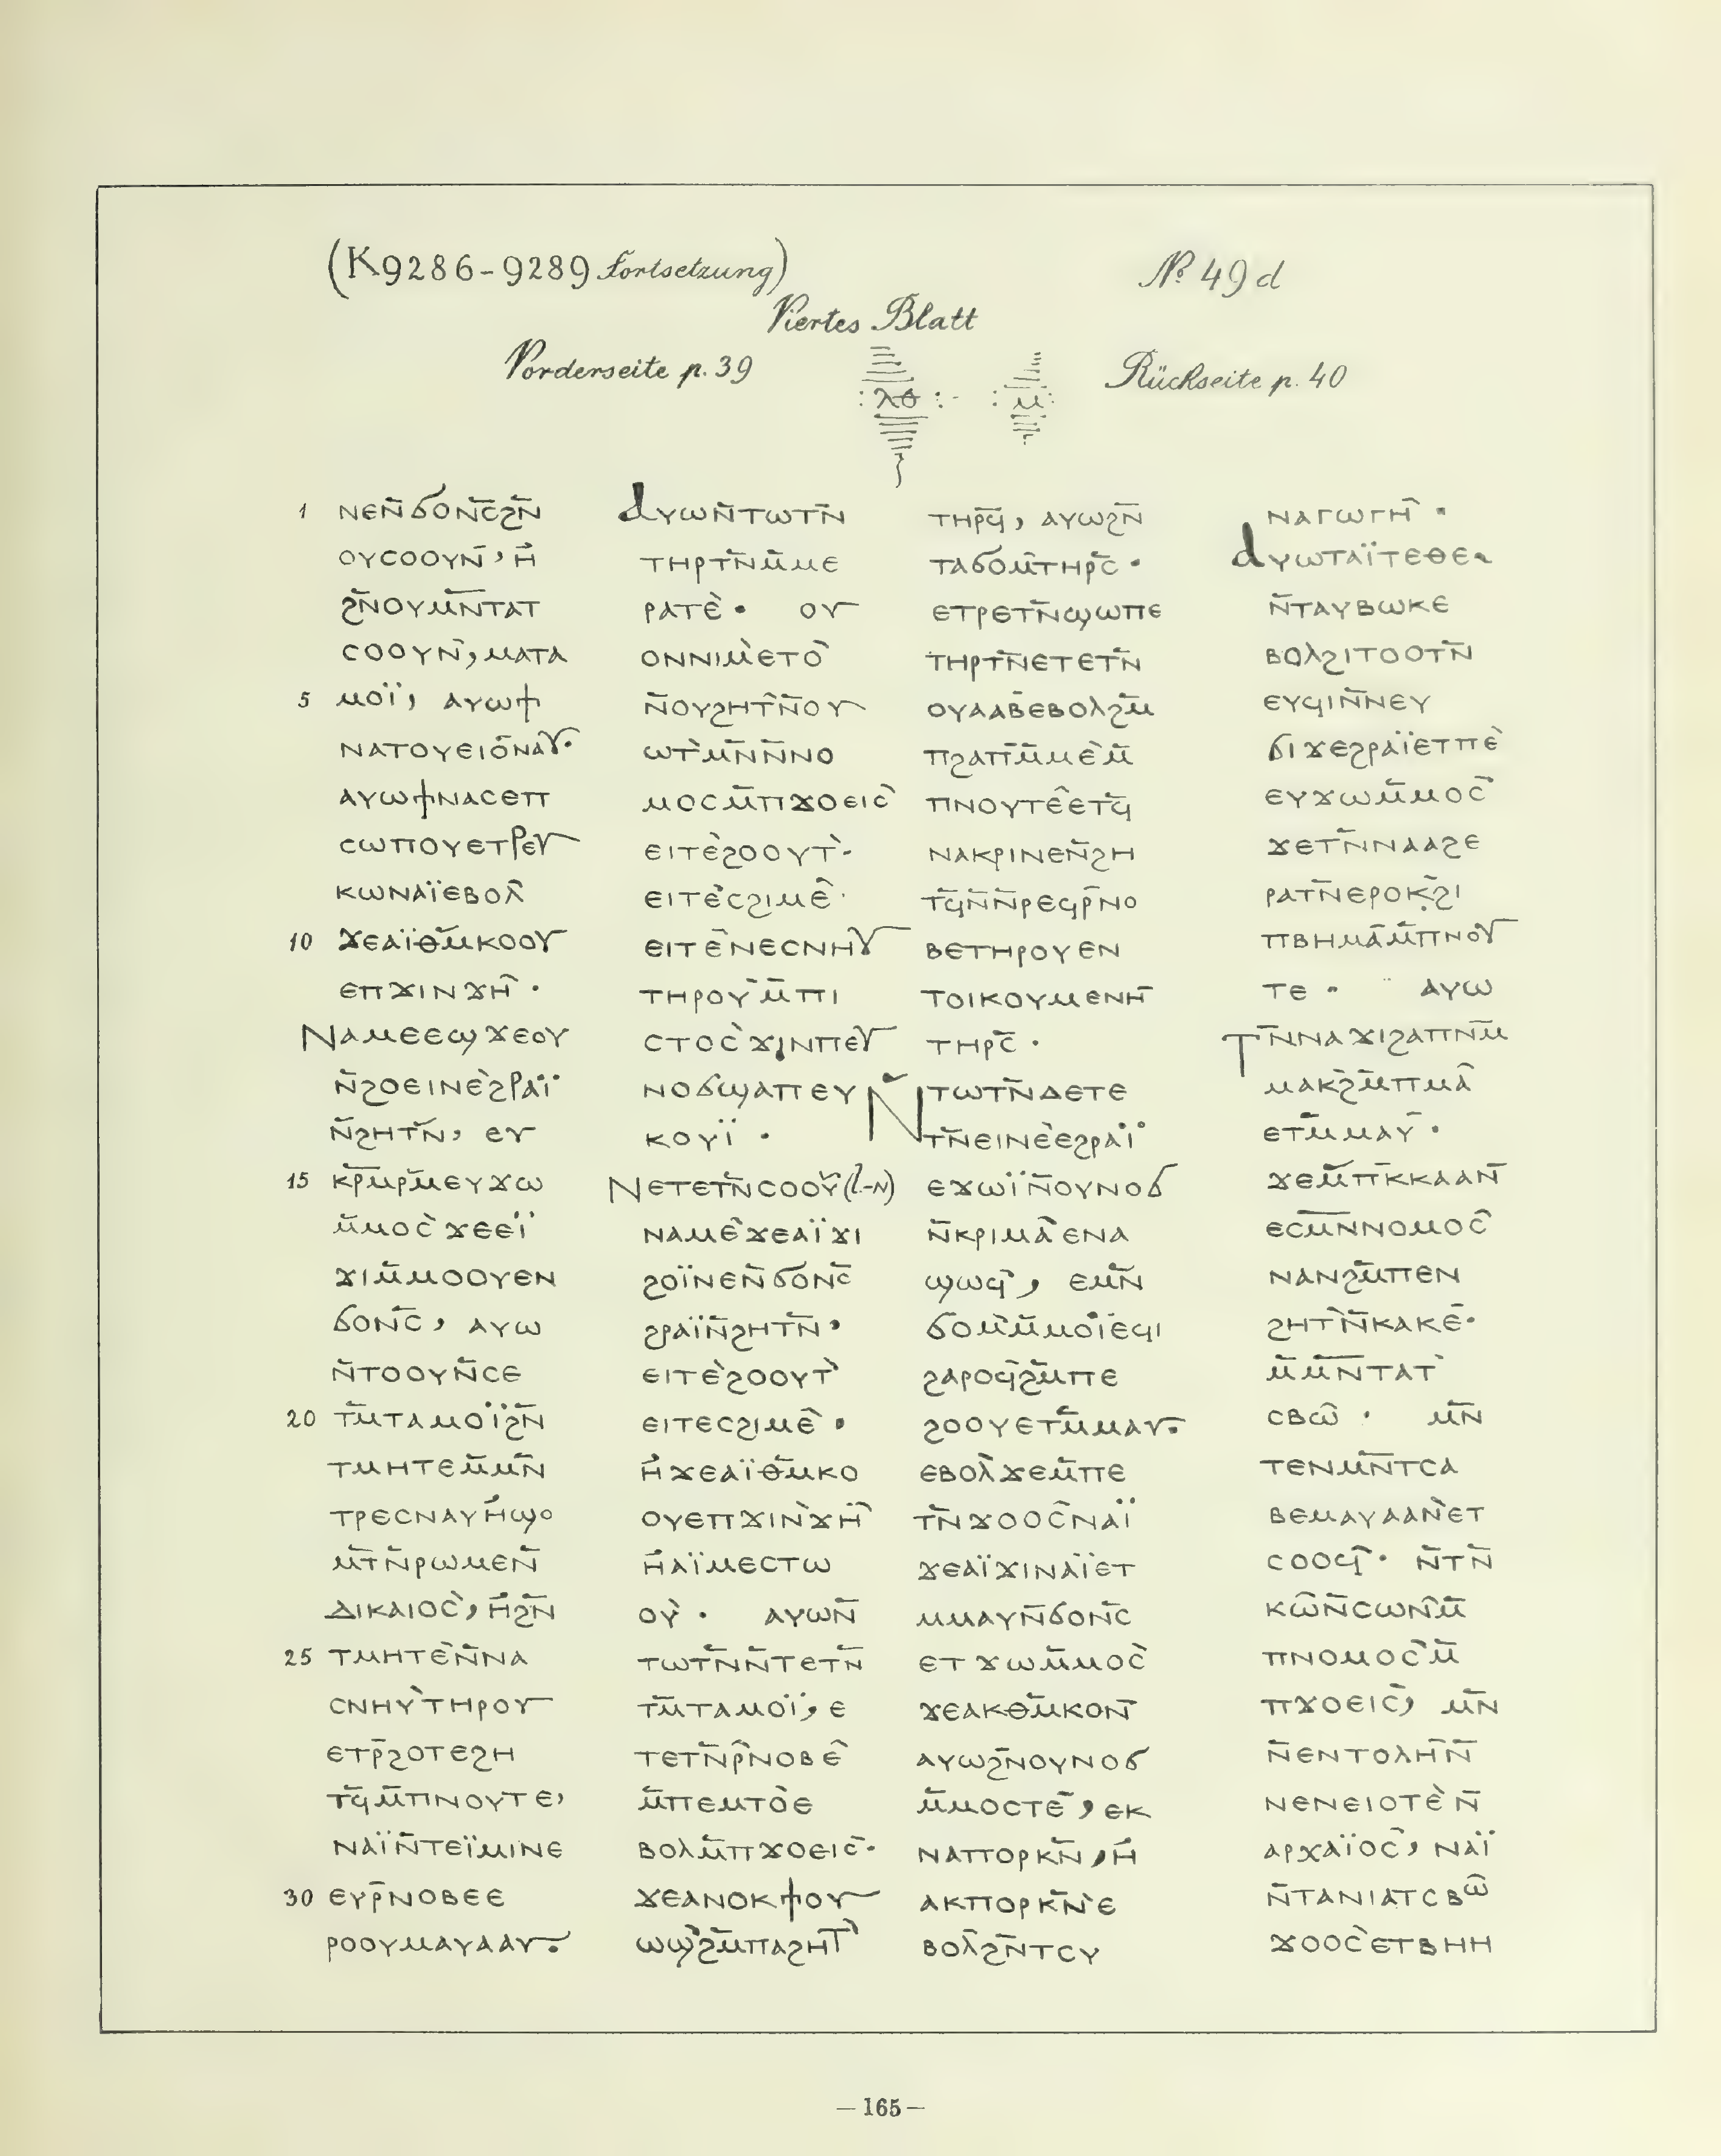 (K9286-9289 Fortsetzung)
№ 49d
Viertes Blatt
Vorderseite p. 39
:ⲗⲑ:-
:ⲙ:
Rückseite p. 40
1 ⲛⲉⲛ̄ϭⲟⲛ̄ⲥϩⲛ̄
ⲟⲩⲥⲟⲟⲩⲛ̄, ⲏ̀
ϩⲛ̄ⲟⲩⲙⲛ̄ⲧⲁⲧ
ⲥⲟⲟⲩⲛ̄, ⲙⲁⲧⲁ
5 ⲙⲟⲓ̈, ⲁⲩⲱϯ
ⲛⲁⲧⲟⲩⲉⲓⲟ̄ⲛⲁⲩ·
ⲁⲩⲱϯⲛⲁⲥⲉⲡ
ⲥⲱⲡⲟⲩⲉⲧⲣⲉⲩ
ⲕⲱⲛⲁⲓ̈ⲉⲃⲟⲗ̄
10 ϫⲉⲁⲓ̈ⲑⲙ̄ⲕⲟⲟⲩ
ⲉⲡϫⲓⲛϫⲏ̂ ·
Ⲛⲁⲙⲉⲉϣϫⲉⲟⲩ
ⲛ̄ϩⲟⲉⲓⲛⲉ̀ϩⲣⲁⲓ̈
ⲛ̄ϩⲏⲧⲛ̄, ⲉⲩ
15 ⲕⲣ̄ⲙⲣⲙ̄ⲉⲩϫⲱ
ⲙ̄ⲙⲟⲥ̀ϫⲉⲉⲓ̈
ϫⲓⲙ̄ⲙⲟⲟⲩⲉⲛ
ϭⲟⲛⲥ̄, ⲁⲩⲱ
ⲛ̄ⲧⲟⲟⲩⲛ̄ⲥⲉ
20 ⲧⲙ̄ⲧⲁⲙⲟⲓ̈ϩⲛ̄
ⲧⲙⲏⲧⲉⲙ̄ⲙⲛ̄
ⲧⲣⲉⲥⲛⲁⲩⲏ̀ϣⲟ
ⲙ̄ⲧⲛ̄ⲣⲱⲙⲉⲛ̄
ⲇⲓⲕⲁⲓⲟⲥ̀, ⲏ̀ϩⲛ̄
25 ⲧⲙⲏⲧⲉ̀ⲛ̄ⲛⲁ
ⲥⲛⲏⲩ̀ⲧⲏⲣⲟⲩ
ⲉⲧⲣ̄ϩⲟⲧⲉϩⲏ
ⲧϥ̄ⲙ̄ⲡⲛⲟⲩⲧⲉ,
ⲛⲁⲓ̈ⲛ̄ⲧⲉⲓ̈ⲙⲓⲛⲉ
30 ⲉⲩⲣ̄ⲛⲟⲃⲉⲉ
ⲣⲟⲟⲩⲙⲁⲩⲁⲁⲩ·
Ⲁⲩⲱⲛ̄ⲧⲱⲧⲛ̄
ⲧⲏⲣⲧⲛ̄ⲙ̄ⲙⲉ
ⲣⲁⲧⲉ̀· ⲟⲩ
ⲟⲛⲛⲓⲙ̀ⲉⲧⲟ̂
ⲛ̄ⲟⲩϩⲏⲧ̂ⲛ̄ⲟⲩ
ⲱⲧ̀ⲙⲛ̄ⲛ̄ⲛⲟ
ⲙⲟⲥⲙ̄ⲡϫⲟⲉⲓⲥ̂
ⲉⲓⲧⲉ̀ϩⲟⲟⲩⲧ̀·
ⲉⲓⲧⲉ̀ⲥϩⲓⲙⲉ̂·
ⲉⲓⲧⲉ̂ⲛⲉⲥⲛⲏⲩ
ⲧⲏⲣⲟⲩ̀ⲙ̄ⲡⲓ
ⲥⲧⲟⲥ̀ϫⲓⲛⲡⲉⲩ
ⲛⲟϭϣⲁⲡⲉⲩ
ⲕⲟⲩⲓ̈ ·
Ⲛⲉⲧⲉⲧⲛ̄ⲥⲟⲟⲩ̄(l.-ⲛ)
ⲛⲁⲙⲉ̂ϫⲉⲁⲓ̈ϫⲓ
ϩⲟⲓ̈ⲛⲉⲛ̄ϭⲟⲛⲥ̄
ϩⲣⲁⲓ̈ⲛ̄ϩⲏⲧⲛ̄·
ⲉⲓⲧⲉ̀ϩⲟⲟⲩⲧ̀
ⲉⲓⲧⲉⲥϩⲓⲙⲉ̂ ·
ⲏ̀ϫⲉⲁⲓ̈ⲑⲙ̄ⲕⲟ
ⲟⲩⲉⲡϫⲓⲛ̀ϫⲏ̂
ⲏ̀ⲁⲓ̈ⲙⲉⲥⲧⲱ
ⲟⲩ̀ · ⲁⲩⲱⲛ̄
ⲧⲱⲧⲛ̄ⲛ̄ⲧⲉⲧⲛ̄
ⲧⲙ̄ⲧⲁⲙⲟⲓ̈, ⲉ
ⲧⲉⲧⲛ̄ⲣ̄ⲛⲟⲃⲉ̂
ⲙ̄ⲡⲉⲙⲧⲟ̀ⲉ
ⲃⲟⲗⲙ̄ⲡϫⲟⲉⲓⲥ̄·
ϫⲉⲁⲛⲟⲕϯⲟⲩ
ⲱϣ̀ϩⲙ̄ⲡⲁϩⲏⲧ̀
ⲧⲏⲣϥ̄, ⲁⲩⲱϩⲛ̄
ⲧⲁϭⲟⲙ̄ⲧⲏⲣⲥ̄·
ⲉⲧⲣⲉⲧⲛ̄ϣⲱⲡⲉ
ⲧⲏⲣⲧⲛ̄ⲉⲧⲉⲧⲛ̄
ⲟⲩⲁⲁⲃ̄ⲉⲃⲟⲗϩⲙ̄
ⲡϩⲁⲡⲙ̄ⲙⲉ̀ⲙ̄
ⲡⲛⲟⲩⲧⲉ̂ⲉⲧϥ̄
ⲛⲁⲕⲣⲓⲛⲉⲛ̄ϩⲏ
ⲧϥ̄ⲛ̄ⲛ̄ⲣⲉϥⲣ̄ⲛⲟ
ⲃⲉⲧⲏⲣⲟⲩⲉⲛ
ⲧⲟⲓⲕⲟⲩⲙⲉⲛⲏ̄
ⲧⲏⲣⲥ̄ ·
Ⲛ̄ⲧⲱⲧⲛ̄ⲇⲉⲧⲉ
ⲧⲛ̄ⲉⲓⲛⲉ̀ⲉϩⲣⲁⲓ̈
ⲉϫⲱⲓ̈ⲛ̄ⲟⲩⲛⲟϭ
ⲛ̄ⲕⲣⲓⲙⲁ̂ⲉⲛⲁ
ϣⲱϥ̄, ⲉⲙⲛ̄
ϭⲟⲙ̀ⲙ̄ⲙⲟⲓ̈ⲉϥⲓ
ϩⲁⲣⲟϥ̄ϩⲙ̄ⲡⲉ
ϩⲟⲟⲩⲉⲧⲙ̄ⲙⲁⲩ·
ⲉⲃⲟⲗ̀ϫⲉⲙ̄ⲡⲉ
ⲧⲛ̄ϫⲟⲟⲥ̂ⲛⲁⲓ̈
ϫⲉⲁⲓ̈ϫⲓⲛⲁⲓ̈ⲉⲧ
ⲙⲙⲁⲩⲛ̄ϭⲟⲛ̄ⲥ
ⲉⲧϫⲱⲙ̄ⲙⲟⲥ̀
ϫⲉⲁⲕⲑⲙ̄ⲕⲟⲛ̄
ⲁⲩⲱϩⲛ̄ⲟⲩⲛⲟϭ
ⲙ̄ⲙⲟⲥⲧⲉ̄, ⲉⲕ
ⲛⲁⲡⲟⲣⲕⲛ̄, ⲏ̀
ⲁⲕⲡⲟⲣⲕⲛ̄̀ⲉ
ⲃⲟⲗ̀ϩⲛ̄ⲧⲥⲩ
ⲛⲁⲅⲱⲅⲏ̂ ·
Ⲁⲩⲱⲧⲁⲓ̈ⲧⲉⲑⲉ
ⲛ̄ⲧⲁⲩⲃⲱⲕⲉ
ⲃⲟⲗϩⲓⲧⲟⲟⲧⲛ̄
ⲉⲩϥⲓⲛ̄ⲛⲉⲩ
ϭⲓϫⲉϩⲣⲁⲓ̈ⲉⲧⲡⲉ̀
ⲉⲩϫⲱⲙ̄ⲙⲟⲥ̂
ϫⲉⲧⲛ̄ⲛⲁⲁϩⲉ
ⲣⲁⲧⲛ̄ⲉⲣⲟⲕ̄ϩⲓ
ⲡⲃⲏⲙⲁ̄ⲙ̄ⲡⲛⲟⲩ
ⲧⲉ · ⲁⲩⲱ
Ⲧⲛ̄ⲛⲁϫⲓϩⲁⲡⲛⲙ̄
ⲙⲁⲕϩ̀ⲙ̄ⲡⲙⲁ̂
ⲉⲧⲙ̄ⲙⲁⲩ̄ ·
ϫⲉⲙ̄ⲡⲕ̄ⲕⲁⲁⲛ̄
ⲉⲥⲙⲛ̄ⲛⲟⲙⲟⲥ̂
ⲛⲁⲛϩⲙ̄ⲡⲉⲛ
ϩⲏⲧ̀ⲛ̄ⲕⲁⲕⲉ̄·
ⲙ̄ⲙⲛ̄ⲧⲁⲧ̀
ⲥⲃⲱ̂ · ⲙⲛ̄
ⲧⲉⲛⲙⲛ̄ⲧⲥⲁ
ⲃⲉⲙⲁⲩⲁⲁⲛ̀ⲉⲧ
ⲥⲟⲟϥ̄· ⲛ̄ⲧⲛ̄
ⲕⲱ̂ⲛ̄ⲥⲱⲛ̂ⲙ̄
ⲡⲛⲟⲙⲟⲥ̂ⲙ̄
ⲡϫⲟⲉⲓⲥ̀, ⲙⲛ̄
ⲛ̄ⲉⲛⲧⲟⲗⲏ̂ⲛ̄
ⲛⲉⲛⲉⲓⲟⲧⲉ̀ⲛ̄
ⲁⲣⲭⲁⲓ̈ⲟⲥ̂, ⲛⲁⲓ̈
ⲛ̄ⲧⲁⲛⲓⲁⲧⲥⲃⲱ̂
ϫⲟⲟⲥ̀ⲉⲧⲃⲏⲏ
— 165 —